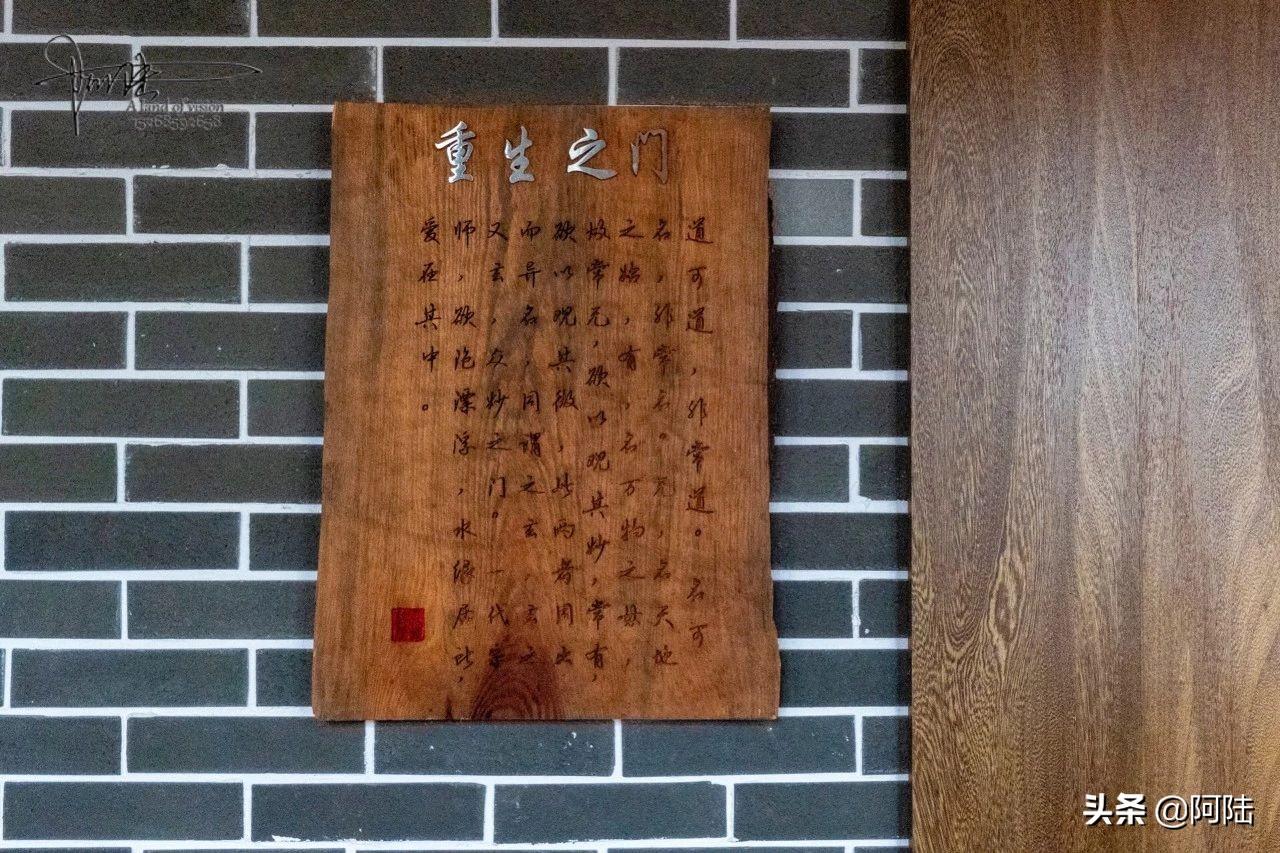 阿陆
A land of vision
15268592658
重生之门
道可道，非常道。名可
名，非常名。无，名天地
之始，有，名万物之母，
故常无，欲以观其妙，常有，
欲以观其微，此两者同出
而异名，同谓之玄，玄之
又玄，众妙之门。一代宗
师，欲漂浮，水居，
爱在其中。
头条 @阿陆